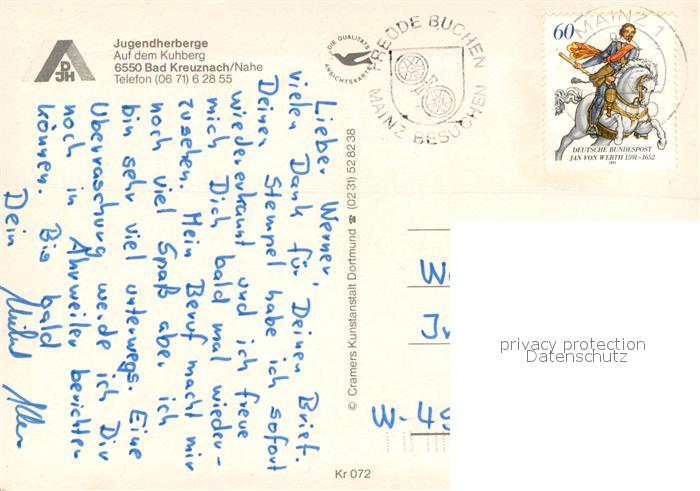 DJH
Jugendherberge
Auf dem Kuhberg
6550 Bad Kreuznach/Nahe
Telefon (06 71) 6 28 55
DIE QUALITÄTS
ANSICHTSKARTE
FREUDE BUCHEN
MAINZ BESUCHEN
MAINZ 1
60
DEUTSCHE BUNDESPOST
JAN VON WERTH 1591-1652
1991
Lieber Werner,
vielen Dank für Deinen Brief.
Deinen Stempel habe ich sofort
wiedererkannt und ich freue
mich Dich bald mal wieder-
zusehen. Mein Beruf macht mir
noch viel Spaß aber ich
bin sehr viel unterwegs. Eine
Überraschung werde ich Dir
noch in Ahrweiler berichten
können. Bis bald
Dein
© Cramers Kunstanstalt Dortmund ☎ (0231) 528238
We
W-49
privacy protection
Datenschutz
Kr 072